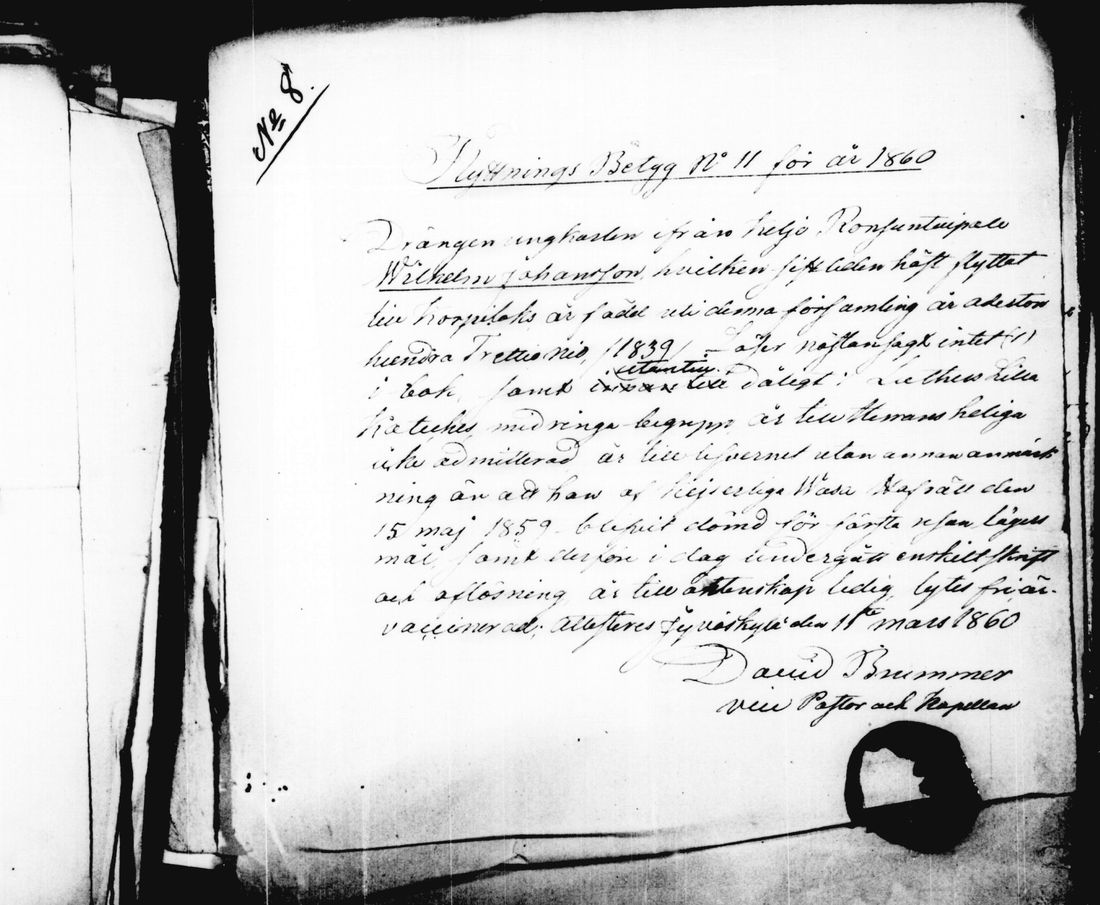 No 8.
Flyttnings Betyg No 11 för år 1860
Drängen ungkarlen ifrån Keljo
Wilhelm Johansson, hvilken sistliden höst flyttat
till Korpilaks är född uti denna församling år aderton
hundra Trettio nio, (1839). Läser nästan sagt intet (1)
i bok, samt utantill dåligt: Luthers Lilla
Kateches, med ringa begrepp är till Herrans heliga
icke admitterad, är till lefvernet utan annan anmärk
ning än att han af Kejserliga Wasa Hofrätt den
15 maj 1859 blifvit dömd för första resan lägers
mål, samt derföre i dag undergått enskilt skrift
och aflösning, är till äktenskap ledig, lytes fri, är
vaccinerad; Attesteras Jyväskylä den 11te mars 1860
David Brummer
vice Pastor och Kapellan